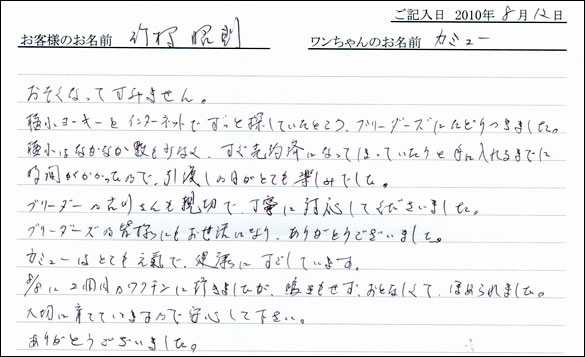 ご記入日 2010年 8月 12日
お客様のお名前 竹村 昭則 ワンちゃんのお名前 カミュー
おそくなってすみません。
極小ヨーキーをインターネットでずっと探していたところ、ブリーダーズにたどりつきました。
極小はなかなか数も少なく、すぐ売約済になってしまっていたりと手に入れるまでに
時間がかかったので、引渡しの日がとても楽しみでした。
ブリーダーの さんも親切で、丁寧に対応してくださいました。
ブリーダーズの皆様にもお世話になり、ありがとうございました。
カミューはとても元気で、健康にすごしています。
8/8に2回目のワクチンに行きましたが、鳴きもせず、おとなしくて、ほめられました。
大切に育てていますので安心して下さい。
ありがとうございました。